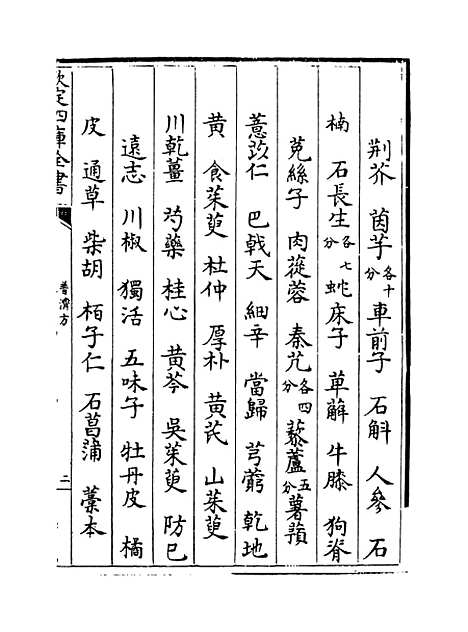 荆芥　茵芋各十分車前子　石斛　人參　石
楠　石長生各七分蛇床子　萆薢　牛膝　狗脊
莵絲子　肉蓯蓉　秦艽各四分藜蘆五分薯蕷
薏苡仁　巴戟天　細辛　當歸　芎藭　乾地
黄　食茱萸　杜仲　厚朴　黄芪　山茱萸
川乾薑　芍藥　桂心　黄芩　吳茱萸　防已
遠志　川椒　獨活　五味子　牡丹皮　橘
皮　通草　柴胡　栢子仁　石菖蒲　藁本
欽定四庫全書
普濟方
二